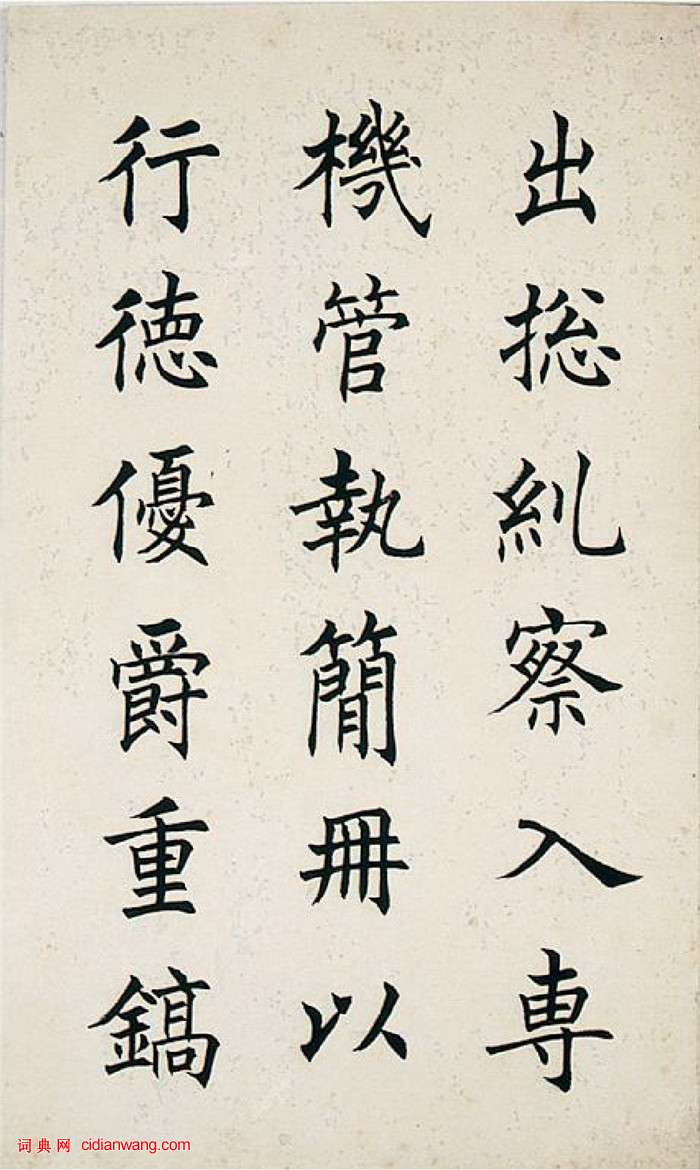 出捴糺察入専
機管執簡冊以
行徳優爵重鎬
词典网 cidianwang.com